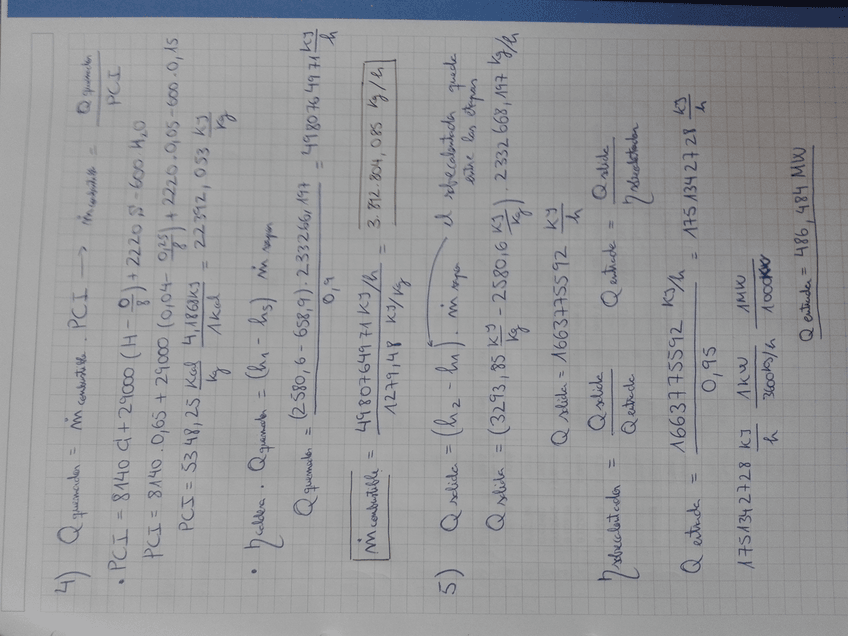 4) Q quemador = ṁ combustible . PCI → ṁ combustible = Q quemador / PCI
• PCI = 8140 C + 29000 (H - O/8) + 2220 S - 600 H2O
PCI = 8140 . 0,65 + 29000 . (0,04 - 0,25/8) + 2220 . 0,05 - 600 . 0,15
PCI = 5348,25 Kcal/kg 4,186KJ/1Kcal = 22392,053 KJ/kg
• η caldera . Q quemador = (h1 - h5) ṁ vapor
Q quemador = (2580,6 - 658,9) . 2332668,197 / 0,9 = 4980764971 KJ/h
ṁ combustible = 4980764971 KJ/h / 1279,48 KJ/kg = 3.892.804,085 Kg/h
5) Q salida = (h2 - h1) . ṁ vapor el sobrecalentador queda
entre las etapas
Q salida = (3293,85 KJ/kg - 2580,6 KJ/kg) . 2332668,197 kg/h
Q salida = 1663775592 KJ/h
η sobrecalentador = Q salida / Q entrada Q entrada = Q salida / η sobrecalentador
Q entrada = 1663775592 KJ/h / 0,95 = 1751342728 KJ/h
1751342728 KJ/h 1KW / 3600KJ/h 1MW / 1000KW
Q entrada = 486,484 MW